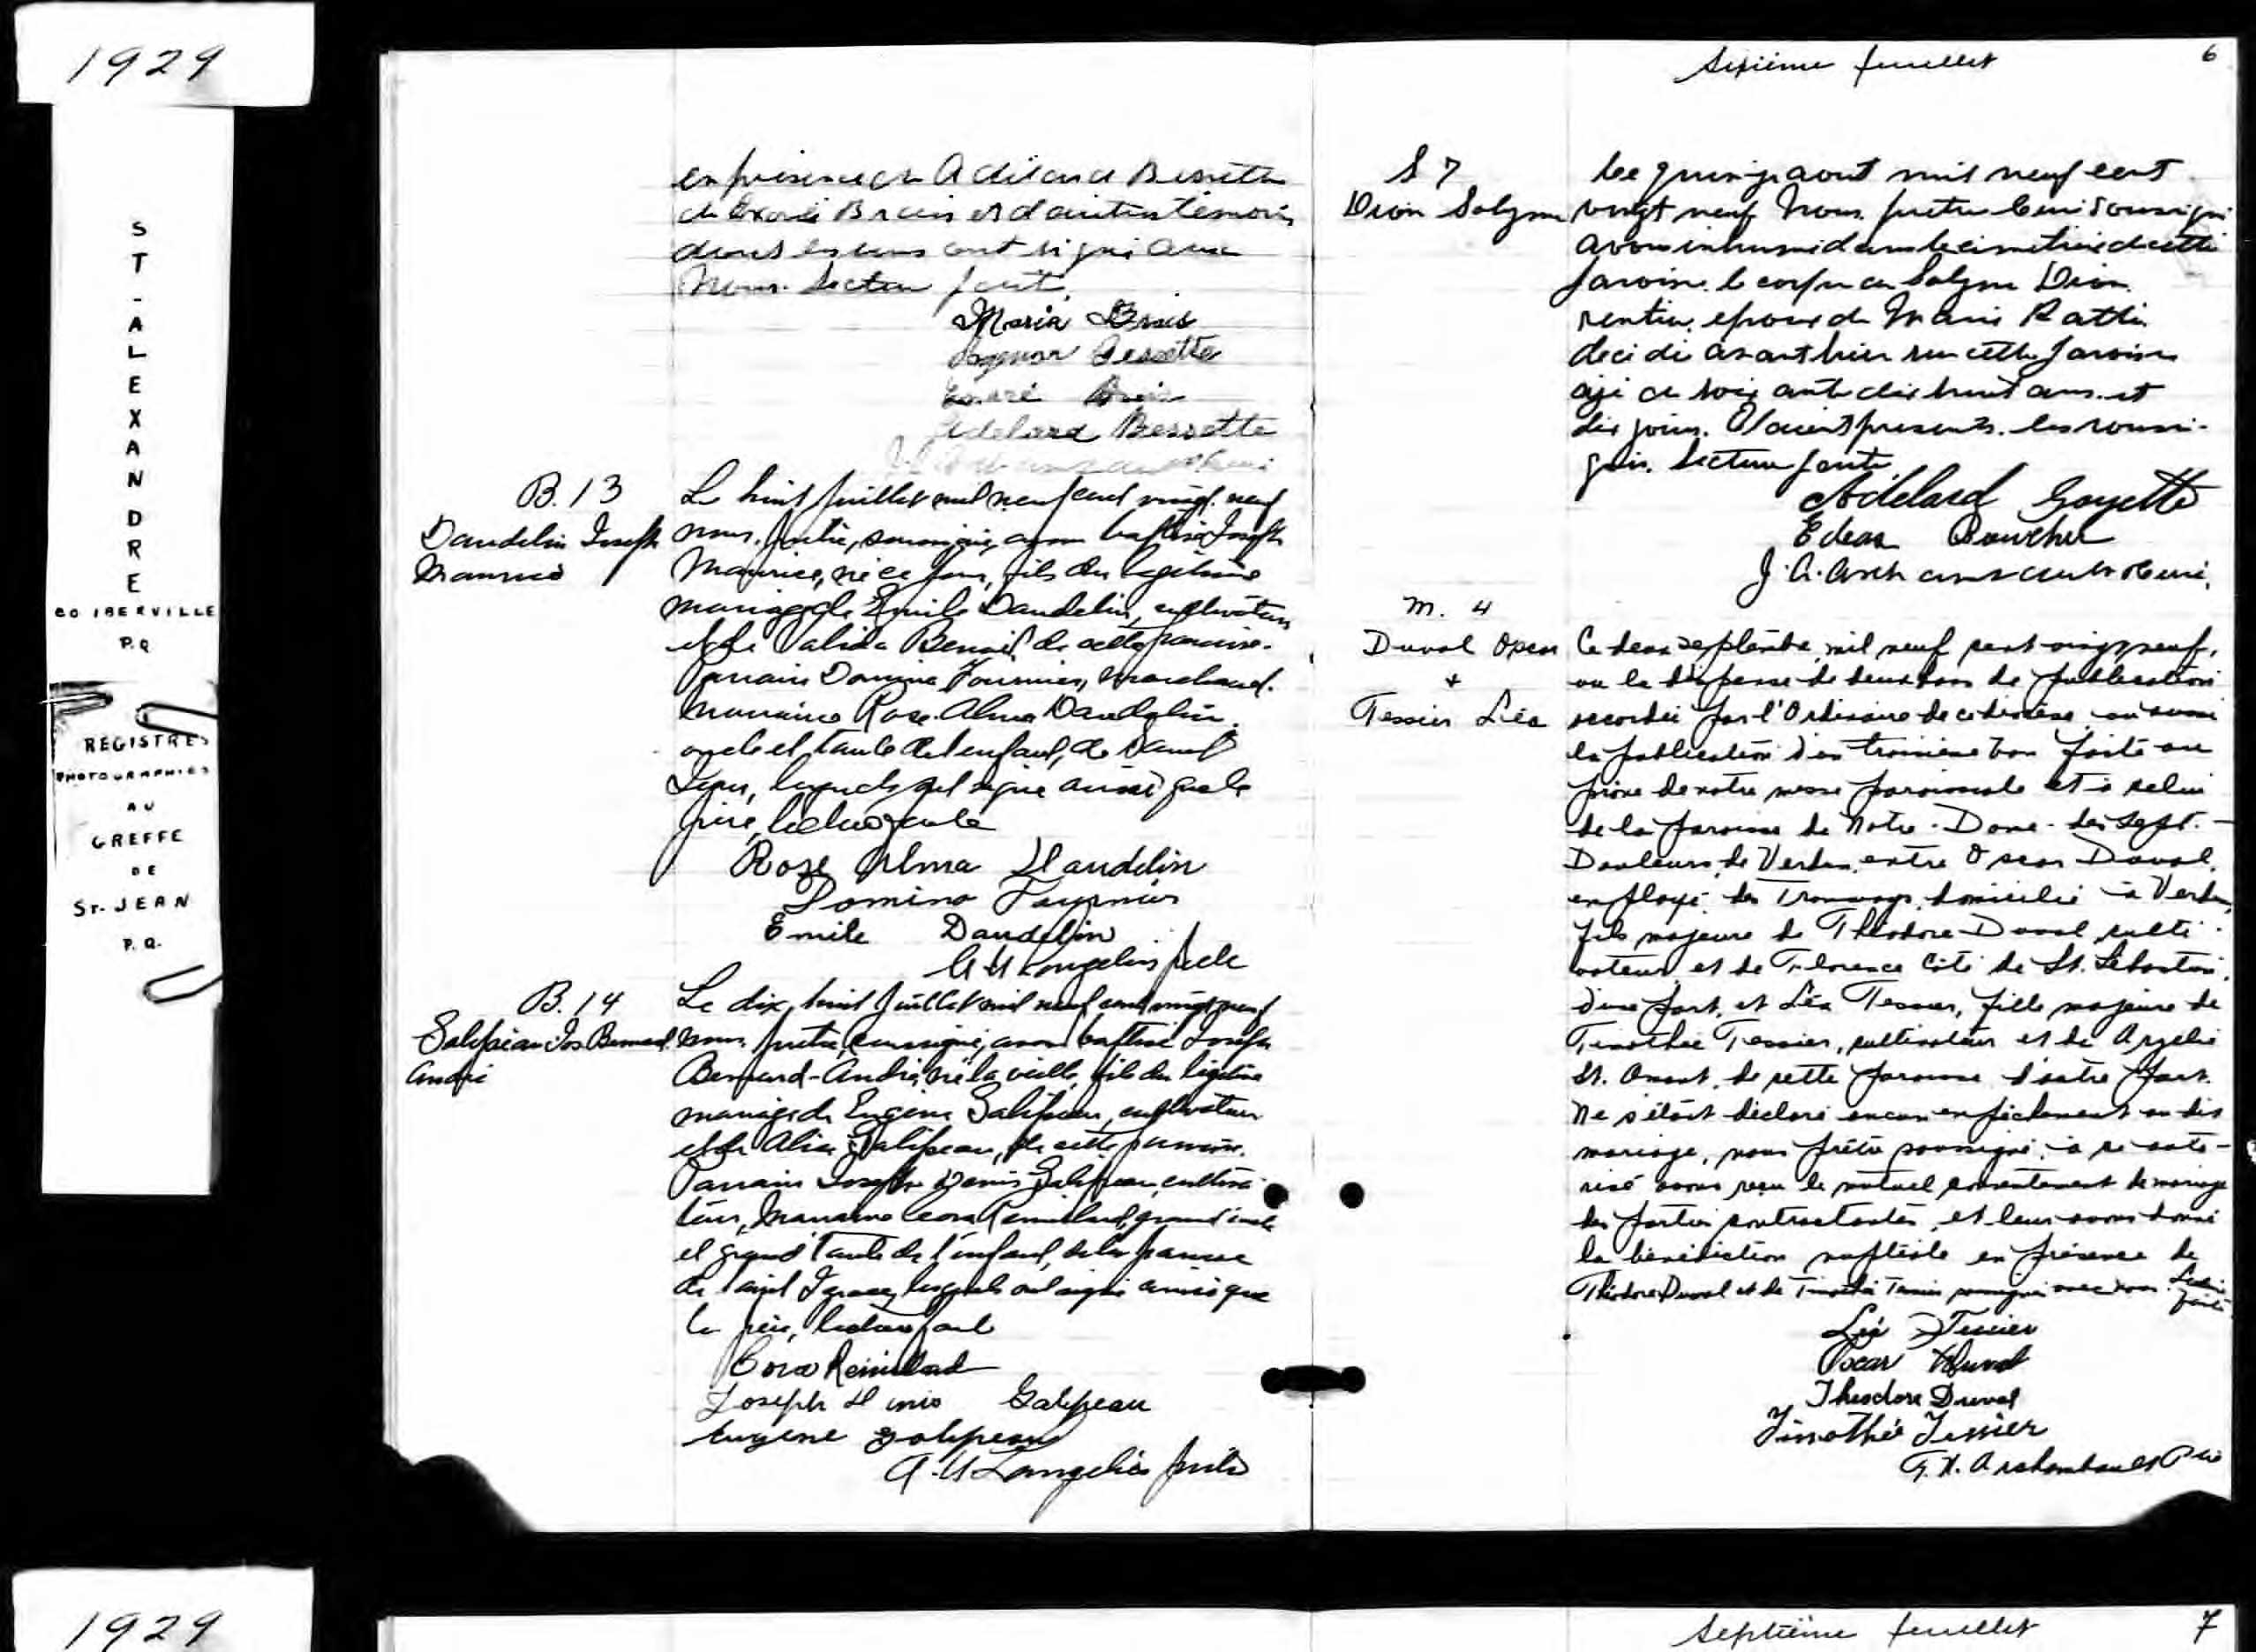 1929
ST-ALEXANDRE
CO IBERVILLE
P.Q
REGISTRES
PHOTOGRAPHIES
AU
GREFFE
DE
ST. JEAN
P.Q.
en présence de Adélard Bessette
de Exoré Brais et d'autres témoins
dont les uns ont signé avec
Nous. Lecture faite.
Maria Brais
Bessette
Brais
Adelard Bessette
B.13
Daudelin Joseph
Maurice
Le huit juillet mil neuf cent vingt neuf
nous, prêtre, soussigné, avons baptisé Joseph
Maurice, né ce jour, fils du légitime
mariage de Emile Daudelin, cultivateur
et de Valida Benoit de cette paroisse.
Parrain Domina Fournier, marchand.
Marraine Rose-Alma Daudelin.
oncle et tante de l'enfant, de Saint
lesquels ont signé ainsi que le
père, lecture faite
Rose Alma Daudelin
Domina Fournier
Emile Daudelin
Langelier ptre
B.14
Galipeau Jos Bernard
André
Le dix huit juillet mil neuf cent vingt neuf
nous, prêtre, soussigné, avons baptisé Joseph
Bernard-André, né la veille, fils du légitime
mariage de Eugène Galipeau, cultivateur
et de Alice Galipeau, de cette paroisse.
Parrain Joseph Denis Galipeau, cultiva-
teur, Marraine Cora Remillard, grand'oncle
et grand'tante de l'enfant, de la paroisse
de Saint Ignace, lesquels ont signé ainsi que
le père, lecture faite
Cora Remillard
Joseph Denis Galipeau
Eugene Galipeau
Langelier ptre
Sixième feuillet 6
S 7
Dion Solyme
Le quinze aout mil neuf cent
vingt neuf Nous, prêtre curé soussigné
avons inhumé dans le cimetière de cette
paroisse le corps de Solyme Dion
rentier, époux de Marie Ratté
décédé avant hier sur cette paroisse
agé de soixante dix huit ans et
dix jours. Etaient présents les soussi-
gnés. Lecture faite
Adelard Goyette
Edeas Boucher
J.A. Archambault ptre curé.
M. 4
Duval Oscar
+
Tessier Léa
Ce deux septembre, mil neuf cent vingt neuf,
vu la dispense de deux bans de publication
accordée par l'Ordinaire de ce diocèse, vu aussi
la publication d'un troisième ban faite au
prône de notre messe paroissiale et à celui
de la paroisse de Notre-Dame-des-Sept-
Douleurs, de Verdun, entre Oscar Duval,
employé des Tramways, domicilié à Verdun,
fils majeur de Théodore Duval, culti-
vateur, et de Florence Côté de St. Sébastien,
d'une part, et Léa Tessier, fille majeure de
Timothée Tessier, cultivateur et de Azélie
St. Amant, de cette paroisse, d'autre part.
Ne s'étant déclaré aucun empêchement au dit
mariage, nous prêtre soussigné, à ce auto-
risé avons reçu le mutuel consentement de mariage
des parties contractantes, et leur avons donné
la bénédiction nuptiale en présence de
Théodore Duval et de Timothée Tessier soussignés avec nous. Lecture
faite
Léa Tessier
Oscar Duval
Theodore Duval
Timothée Tessier
Archambault Ptre
1929
Septième feuillet 7